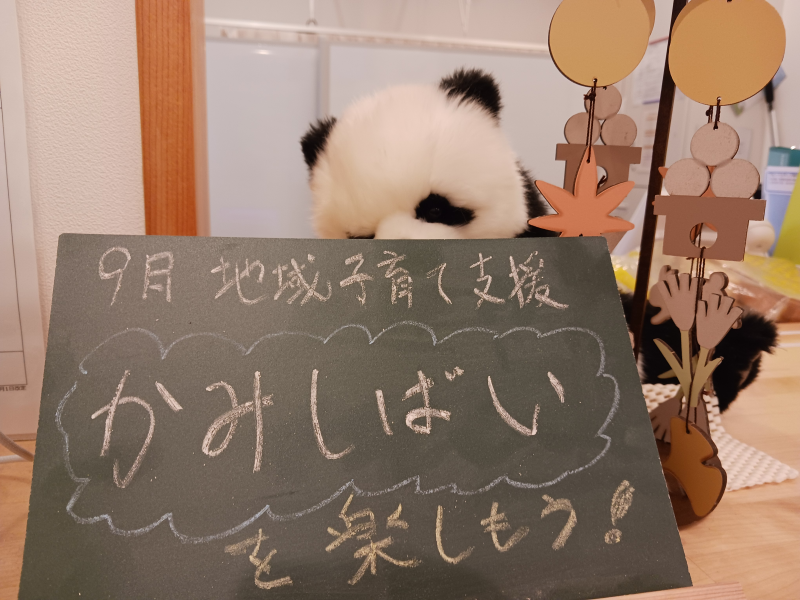 9月 地域子育て支援
かみしばい
を楽しもう!